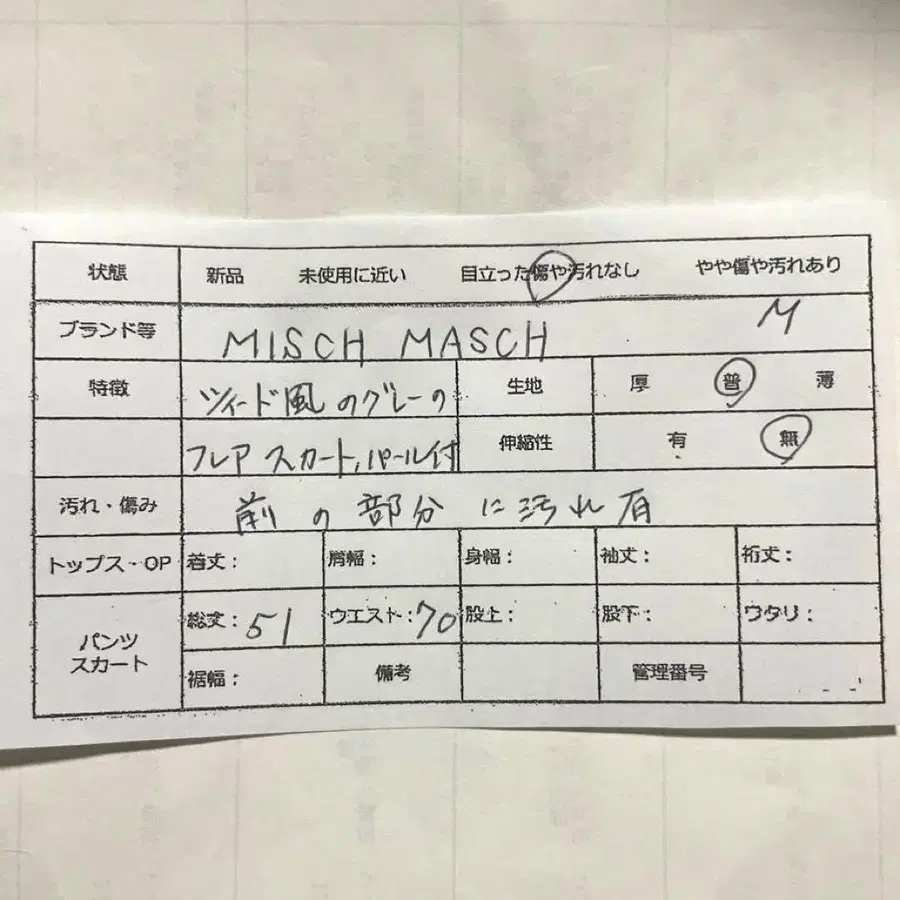 状態 新品 未使用に近い 目立った傷や汚れなし やや傷や汚れあり
ブランド等 MISCH MASCH M
特徴 ツィード風のグレーの 生地 厚 普 薄
フレアスカート,パール付 伸縮性 有 無
汚れ・傷み 前の部分に汚れ有
トップス・OP 着丈: 肩幅: 身幅: 袖丈: 裄丈:
パンツ スカート 総丈:51 ウエスト:70 股上: 股下: ワタリ:
裾幅: 備考 管理番号